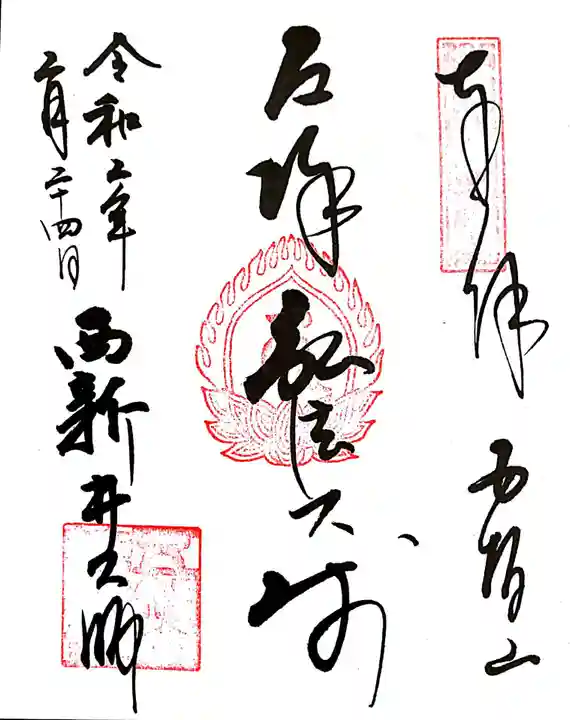 奉拝
五智山
厄除
弘法大師
西新井大師
令和二年
二月二十四日